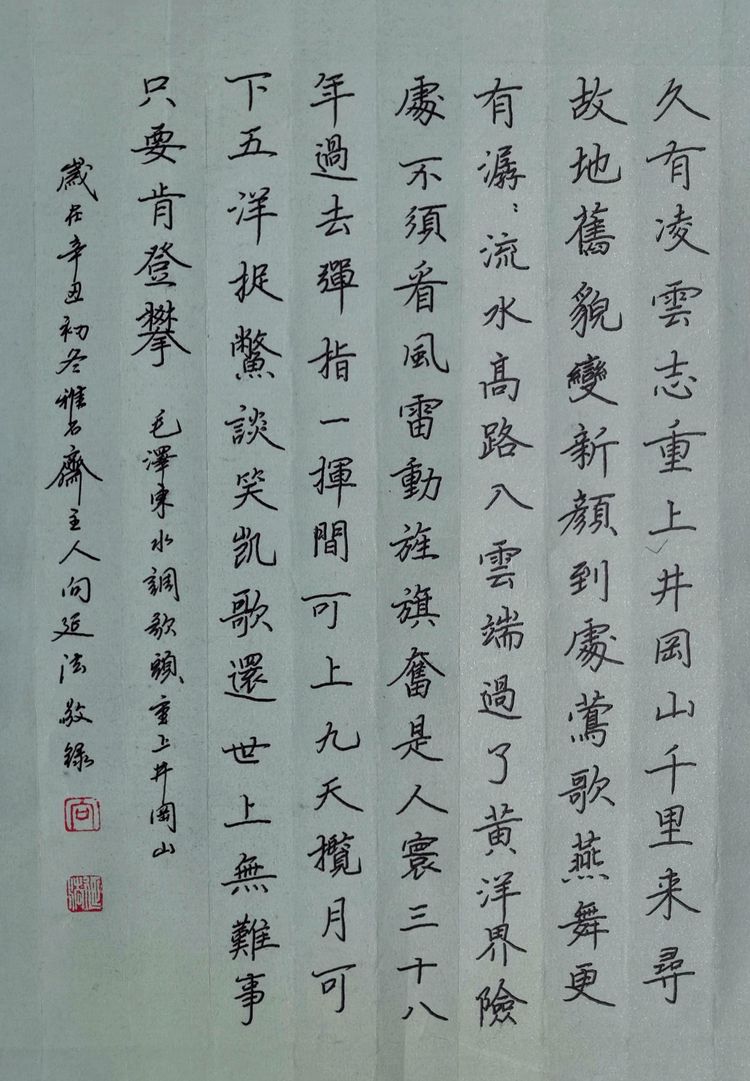 久有凌雲志重上井岡山千里来尋
故地舊貌變新顏到處鶯歌燕舞更
有潺:流水高路入雲端過了黃洋界險
處不須看風雷動旌旗奮是人寰三十八
年過去彈指一揮間可上九天攬月可
下五洋捉鱉談笑凱歌還世上無難事
只要肯登攀
毛澤東水調歌頭重上井岡山
歲在辛丑初冬雅石齋主人向延法敬錄
向